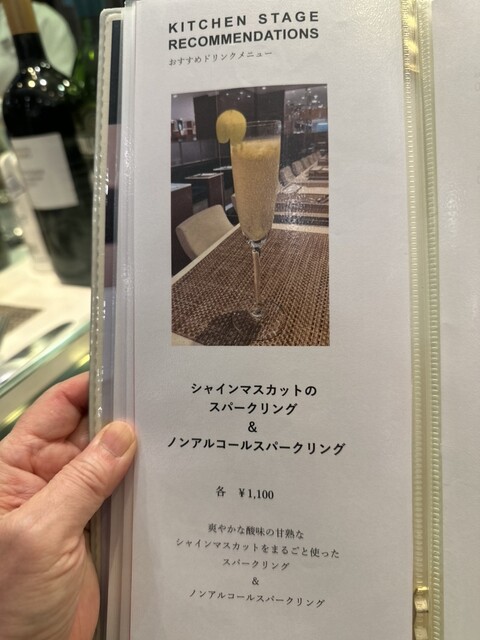 KITCHEN STAGE
RECOMMENDATIONS
おすすめドリンクメニュー
シャインマスカットの
スパークリング
&
ノンアルコールスパークリング
各 ¥1,100
爽やかな酸味の甘熟な
シャインマスカットをまるごと使った
スパークリング
&
ノンアルコールスパークリング